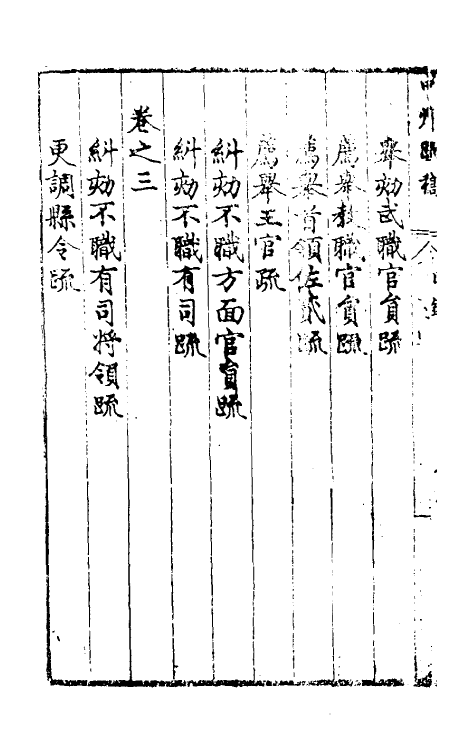 舉劾武職官員疏
薦舉教職官員疏
薦舉首領佐貳疏
薦舉王官疏
糾劾不職方面官員疏
糾劾不職有司疏
卷之三
糾劾不職有司將領疏
更調縣令疏